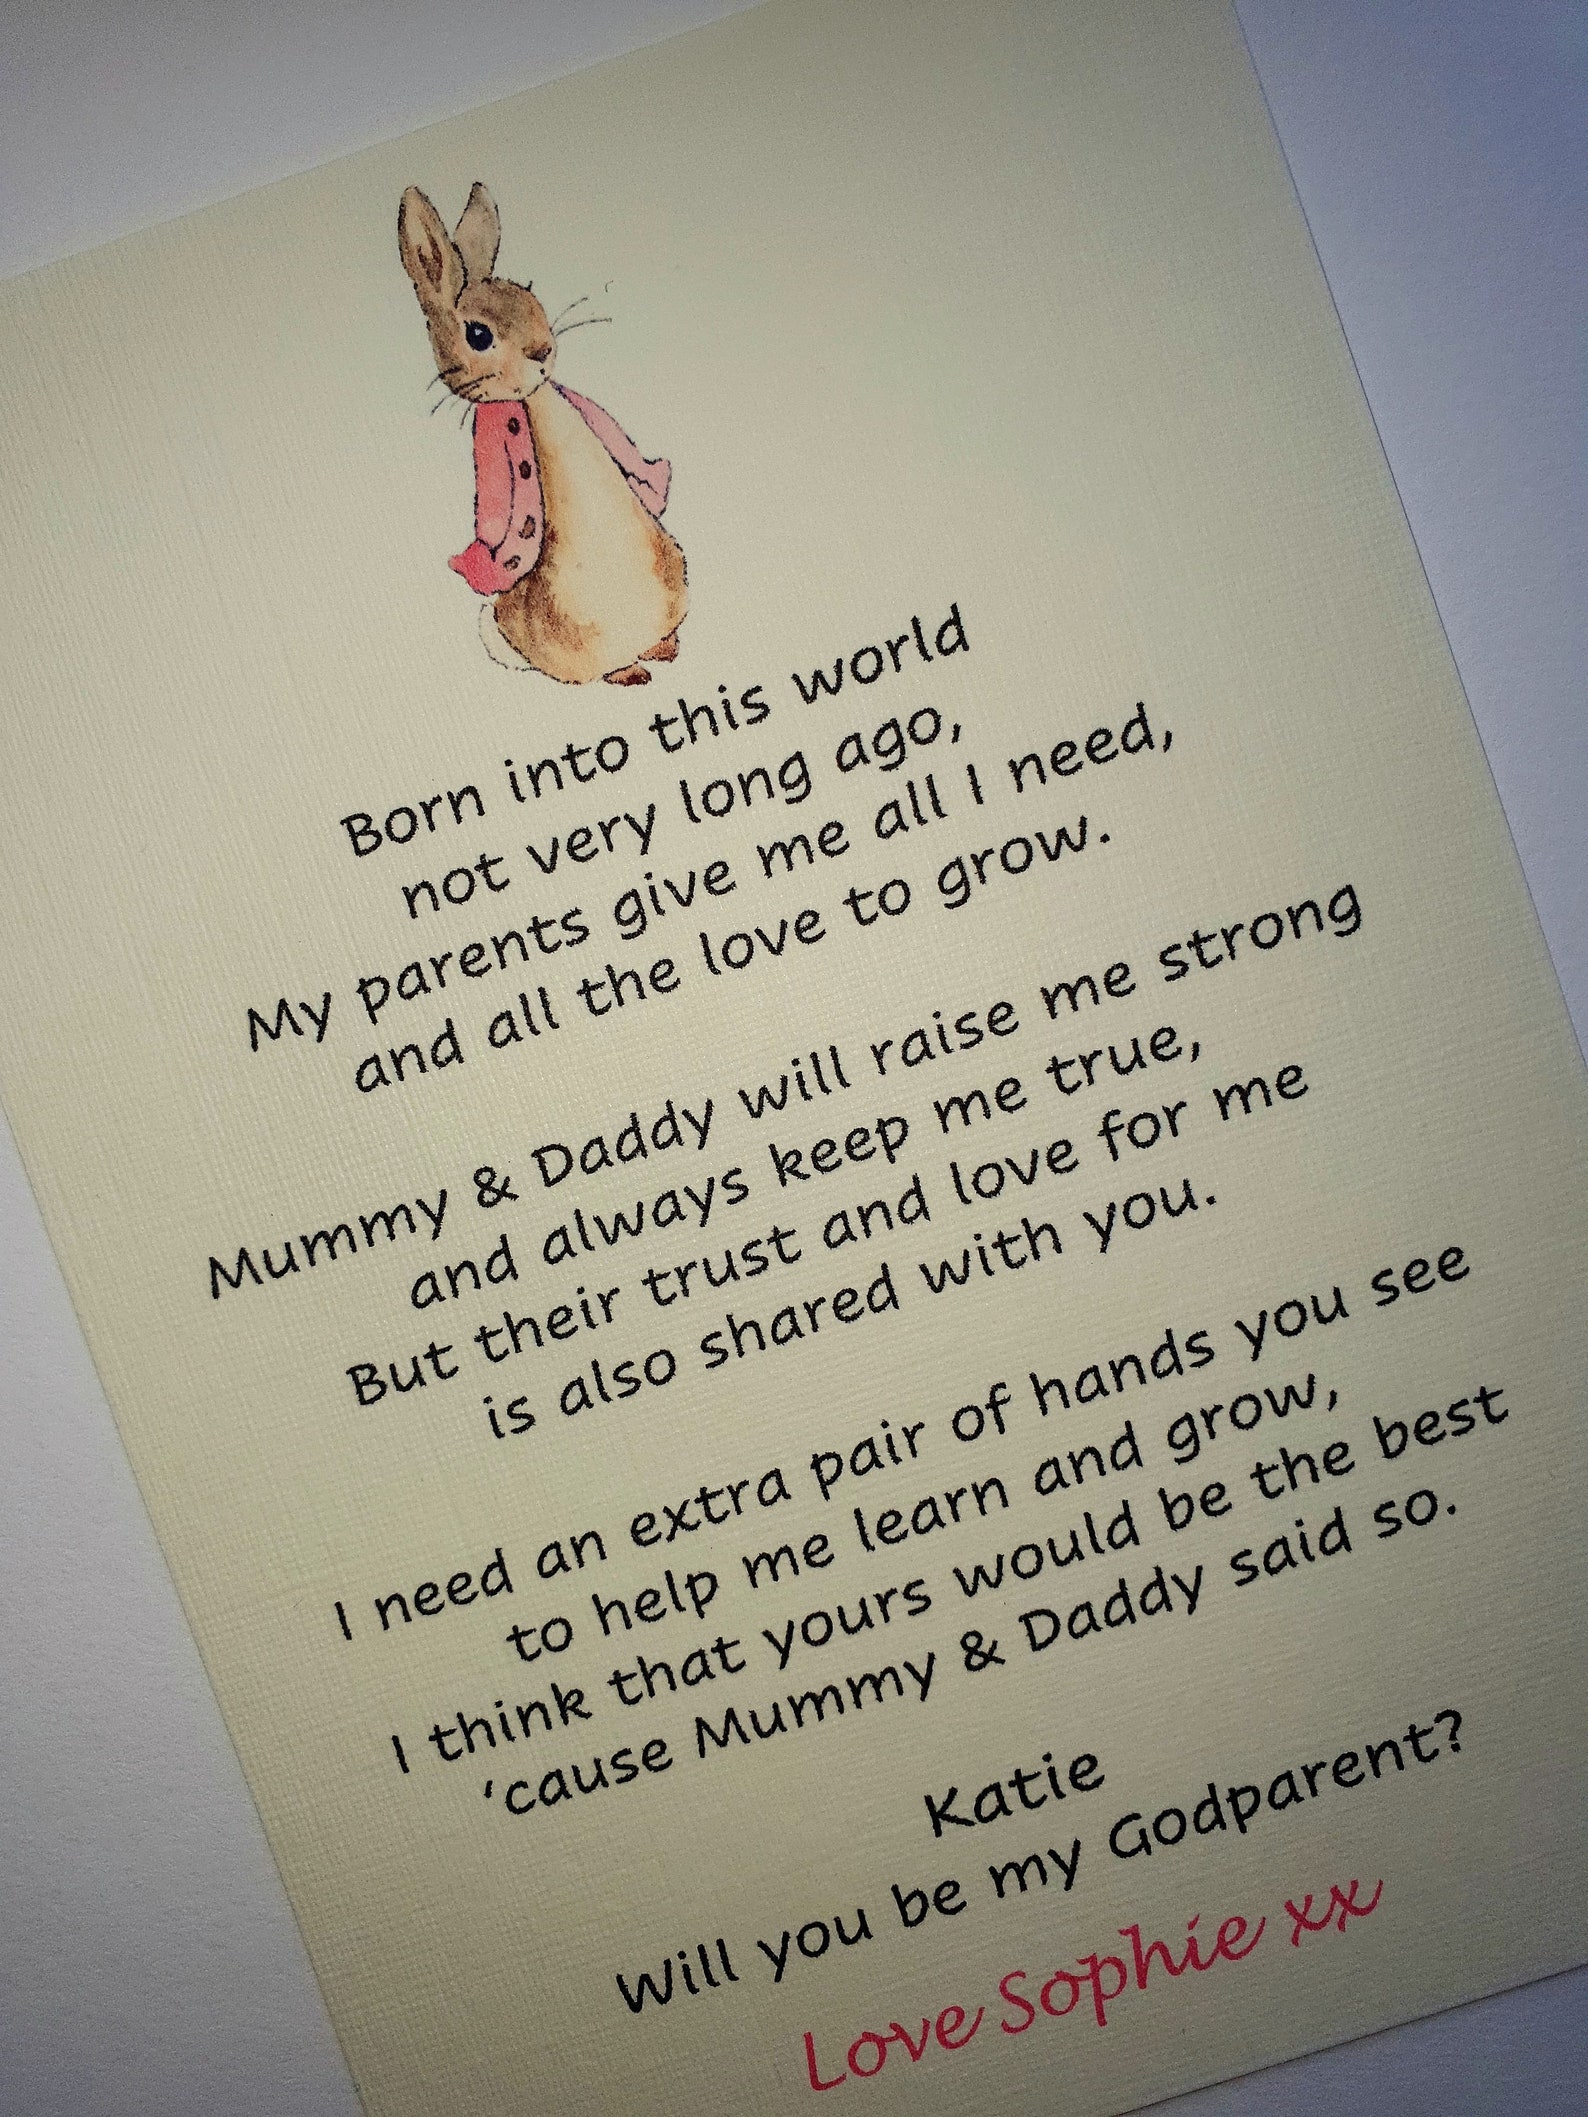 Born into this world
not very long ago,
My parents give me all I need,
and all the love to grow.
Mummy & Daddy will raise me strong
and always keep me true,
But their trust and love for me
is also shared with you.
I need an extra pair of hands you see
to help me learn and grow,
I think that yours would be the best
‘cause Mummy & Daddy said so.
Katie
Will you be my Godparent?
Love Sophie xx